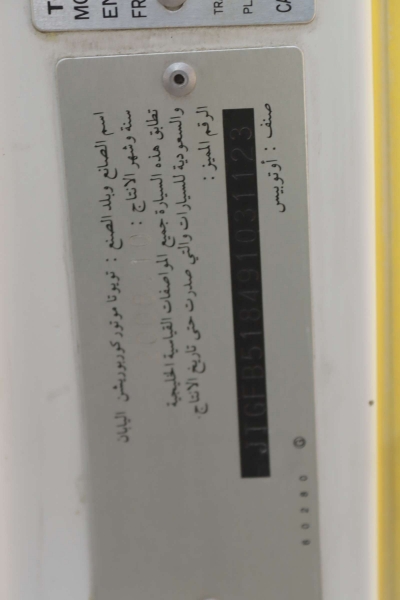 اسم الصانع وبلد الصنع : تويوتا موتور كوربوريشن اليابان
سنة وشهر الانتاج :
تطابق هذه السيارة جميع المواصفات القياسية الخليجية
والسعودية للسيارات والتي صدرت حتى تاريخ الانتاج.
الرقم المميز :
JTGFB518491031123
صنف : أوتوبيس
60280